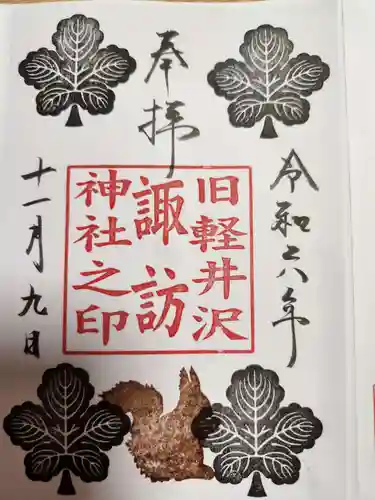 奉拝
令和六年
旧軽井沢
諏訪
神社之印
十一月九日